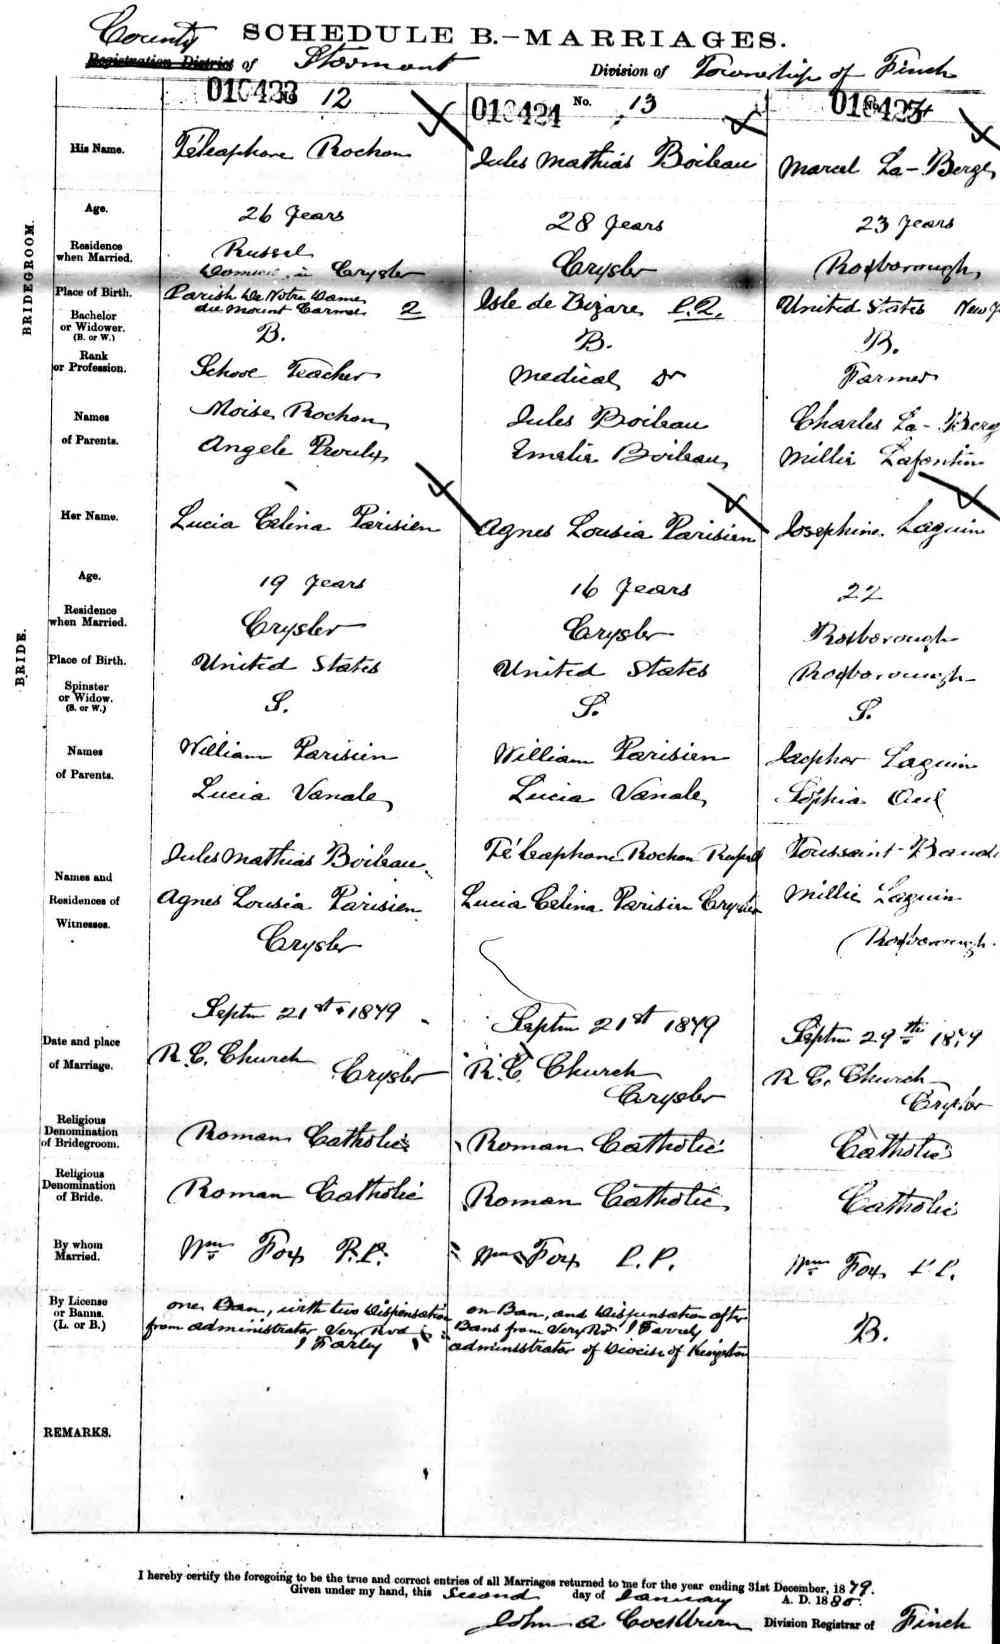 County SCHEDULE B.-MARRIAGES.
Registration District of Stormont Division of Township of Finch
010423 No. 12
His Name. Téleaphore Rochon
Age. 26 years
Residence when Married. Russel
Crysler
Place of Birth. Parish De Notre Dame
du Mount Carmel 2
Bachelor or Widower. (B. or W.) B.
Rank or Profession. School Teacher
Names of Parents. Moise Rochon
Angele Proulx
Her Name. Lucia Celina Parisien
Age. 19 years
Residence when Married. Crysler
Place of Birth. United States
Spinster or Widow. (S. or W.) S.
Names of Parents. William Parisien
Lucia Vanale
Names and Residences of Witnesses. Jules Mathias Boileau
Agnes Lousia Parisien
Crysler
Date and place of Marriage. Septm 21st 1879
R. C. Church Crysler
Religious Denomination of Bridegroom. Roman Catholic
Religious Denomination of Bride. Roman Catholic
By whom Married. Wm Fox P.P.
By License or Banns. (L. or B.) one Ban, with two Dispensation
from administrator Very Rvd
J Farley
REMARKS.
BRIDEGROOM.
BRIDE.
010424 No. 13
Jules Mathias Boileau
28 years
Crysler
Isle de Bizare P.Q.
B.
Medical Dr
Jules Boileau
Emelie Boileau
Agnes Lousia Parisien
16 years
Crysler
United States
S.
William Parisien
Lucia Vanale
Téleaphone Rochon Russell
Lucia Celina Parisien Crysler
Septm 21st 1879
R. C. Church
Crysler
Roman Catholic
Roman Catholic
Wm Fox P.P.
on Ban, and Dispensation after
Bans from Very Rd J Farrely
administrator of Diocise of Kingston
010425 No.
Marcel La-Berge
23 years
Roxborough
United States New
B.
Farmer
Charles La-Berg
Millie Lafontin
Josephine Laguin
22
Roxborough
Roxborough
S.
Laguin
Sophia
Toussaint
Millie Laguin
Roxborough
Septm 29th 1879
R C. Church
Crysler
Catholic
Catholic
Wm Fox P P.
B.
I hereby certify the foregoing to be the true and correct entries of all Marriages returned to me for the year ending 31st December, 1879.
Given under my hand, this Second day of January A. D. 1880.
John A Cockburn Division Registrar of Finch